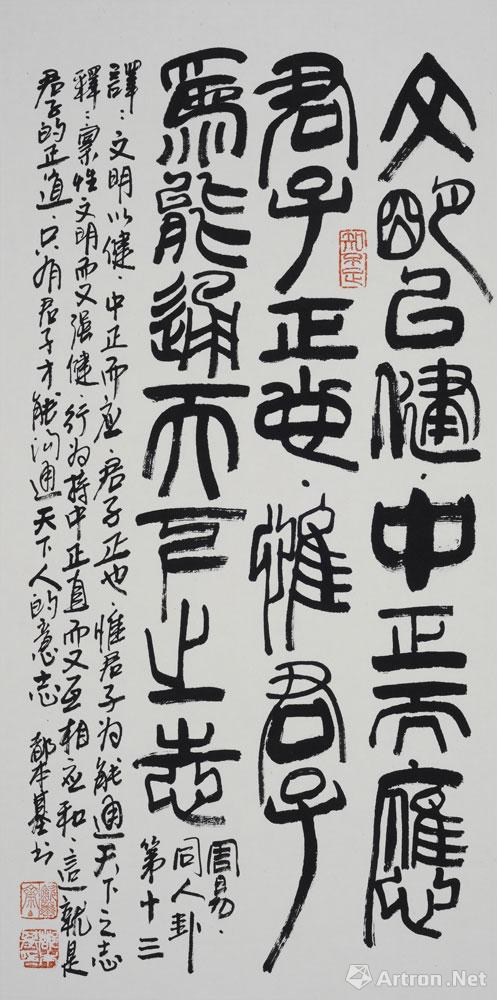 文明以健·中正而應
君子正也·惟君子
為能通天下之志
周易·
同人卦
第十三
譯：文明以健·中正而应·君子正也·惟君子为能通天下之志
釋：禀性文明而又强健·行为持中正直而又互相应和·這就是
君子的正道·只有君子才能沟通天下人的意志 都本基书
Artron.Net